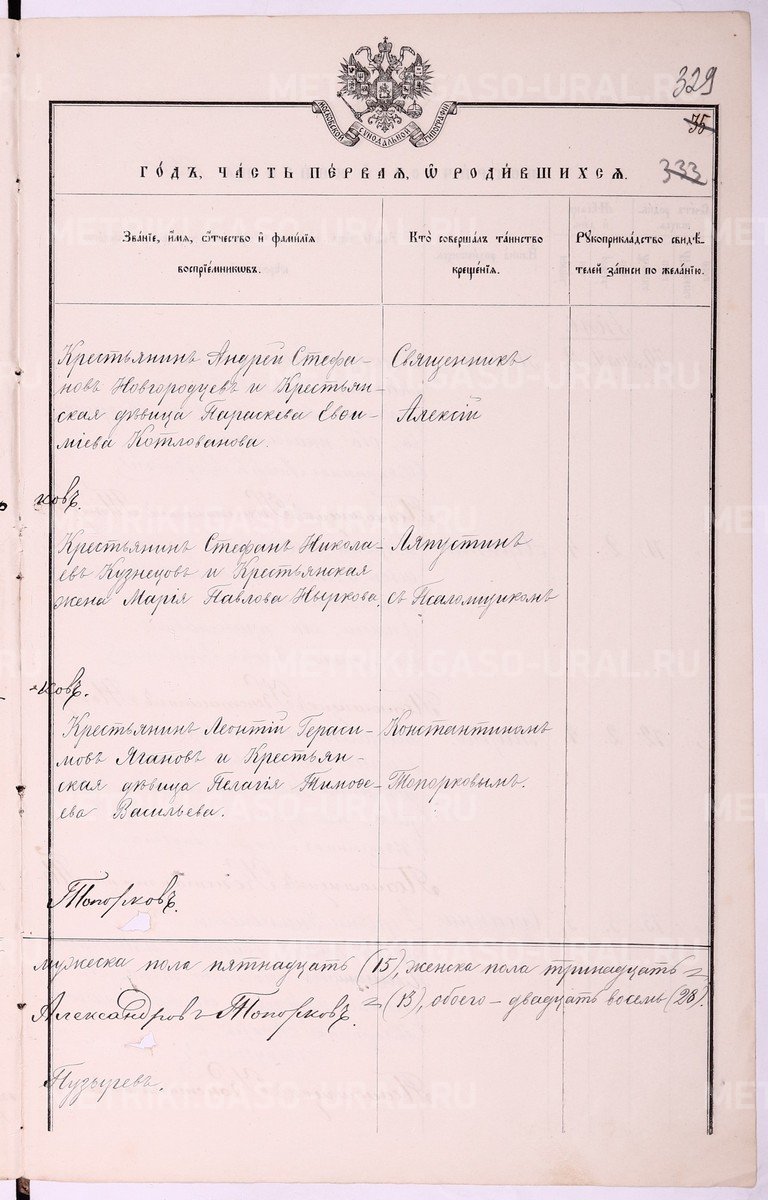 329
МОСКОВСКОЙ СѴНОДАЛЬНОЙ ТИПОГРАФІИ
35
ГО́ДЪ, ЧА́СТЬ ПЕ́РВАЯ, Ѽ РОДИ́ВШИХСЯ.
333
Зва́нїе, и҆́мя, ѻ҆́тчество и҆ фами́лїя
воспрїе́мникѡвъ.
Кто̀ соверша́лъ та́инство
креще́нїя.
Рꙋкоприкла́дство свидѣ́-
телей за́писи по жела́нїю.
Крестьянинъ Андрей Стефа-
новъ Новгородцевъ и Крестьян-
ская дѣвица Параскева Евѳи-
міева Котлованова.
Священникъ
Алексій
ковъ.
Крестьянинъ Стефанъ Никола-
евъ Кузнецовъ и Крестьянская
жена Марія Павлова Ныркова
Ляпустинъ
съ Псаломщикомъ
ковъ.
Крестьянинъ Леонтій Гераси-
мовъ Ягановъ и Крестьян-
ская дѣвица Пелагія Тимоѳе-
ева Васильева.
Константиномъ
Топорковымъ.
Топорковъ.
мужеска пола пятнадцать (15), женска пола тринадцать =
= (13), обоего – двадцать восемь (28).
Александровъ Топорковъ.
Пузыревъ.
METRIKI.GASO-URAL.RU